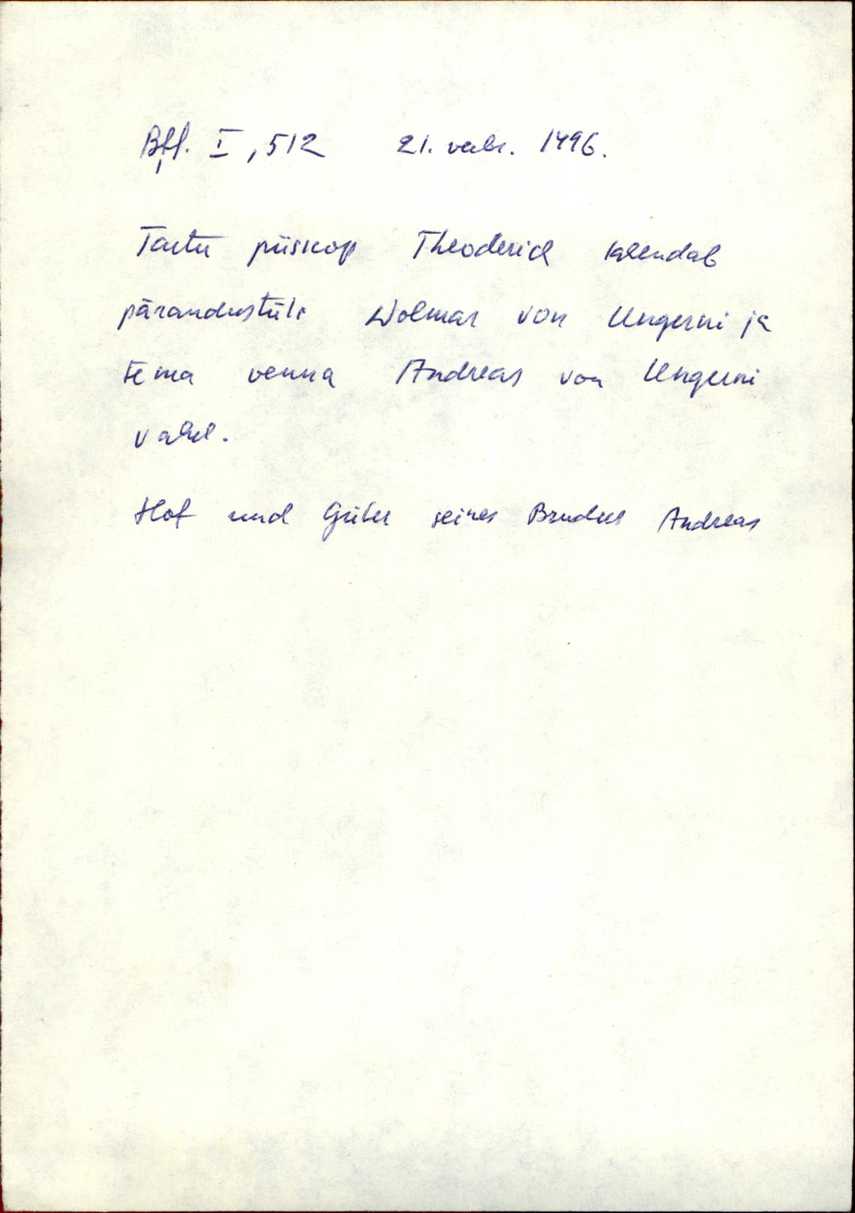 Bfl. I, 512 21. veebr. 1496.
Tartu piiskop Theoderich lahendab
pärandustüli Wolmar von Ungerni ja
tema venna Andreas von Ungerni
vahel.
Hof und Güter seines Bruders Andreas